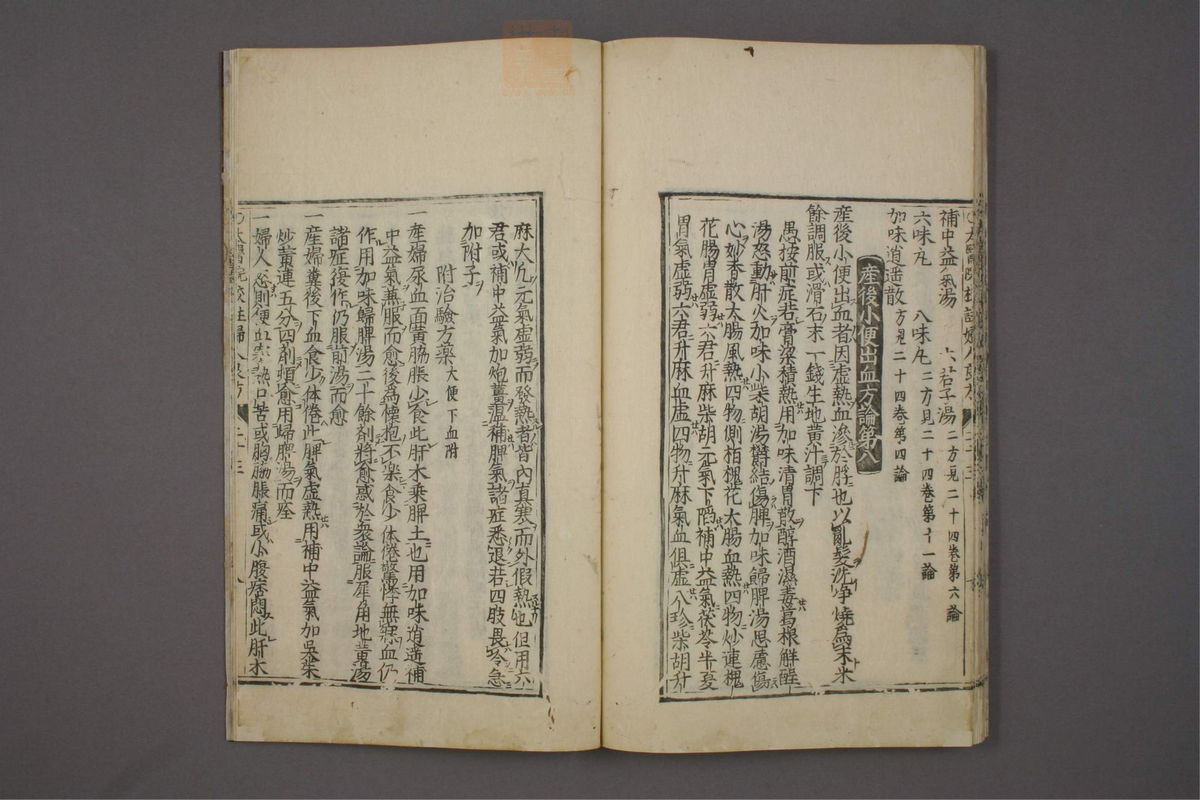 補中益氣湯 六君子湯二方見二十四卷第六論
六味丸 八味丸二方見二十四卷第十一論
加味逍遥散方見二十四卷第四論
産後小便出血方論第八
産後小便出血者因虛熱血滲於脬也以亂髮洗净燒爲末米
餘調服或滑石末一錢生地黃汁調下
愚按前症若膏粱積熱用加味清胃散醇酒濕毒葛根觧酲
湯怒動肝火加味小柴胡湯欝結傷脾加味歸脾湯思慮傷
心妙香散大腸風熱四物側栢槐花大腸血熱四物炒連槐
花腸胃虛弱六君升麻柴胡元氣下䧟補中益氣茯苓半夏
胃氣虛弱六君升麻血虛四物升麻氣血俱虛八珍柴胡升
麻大凢元氣虛弱而發熱者皆內真寒而外假熱也但用六
君或補中益氣加炮薑温補脾氣諸症悉退若四肢畏冷急
加附子
附治驗方藥大便下血附
一産婦尿血面黃脇脹少食此肝木乘脾土也用加味逍遥補
中益氣兼服而愈後爲懷抱不樂食少体倦驚悸無寐血仍
作用加味歸脾湯二十餘剤將愈惑於衆論服犀角地黃湯
諸症復作仍服前湯而愈
一産婦糞後下血食少体倦此脾氣虛熱用補中益氣加吳茱
炒黃連五分四剤頓愈用歸脾湯而痊
一婦人怒則便血寒熱口苦或胸脇脹痛或小腹痞悶此肝木